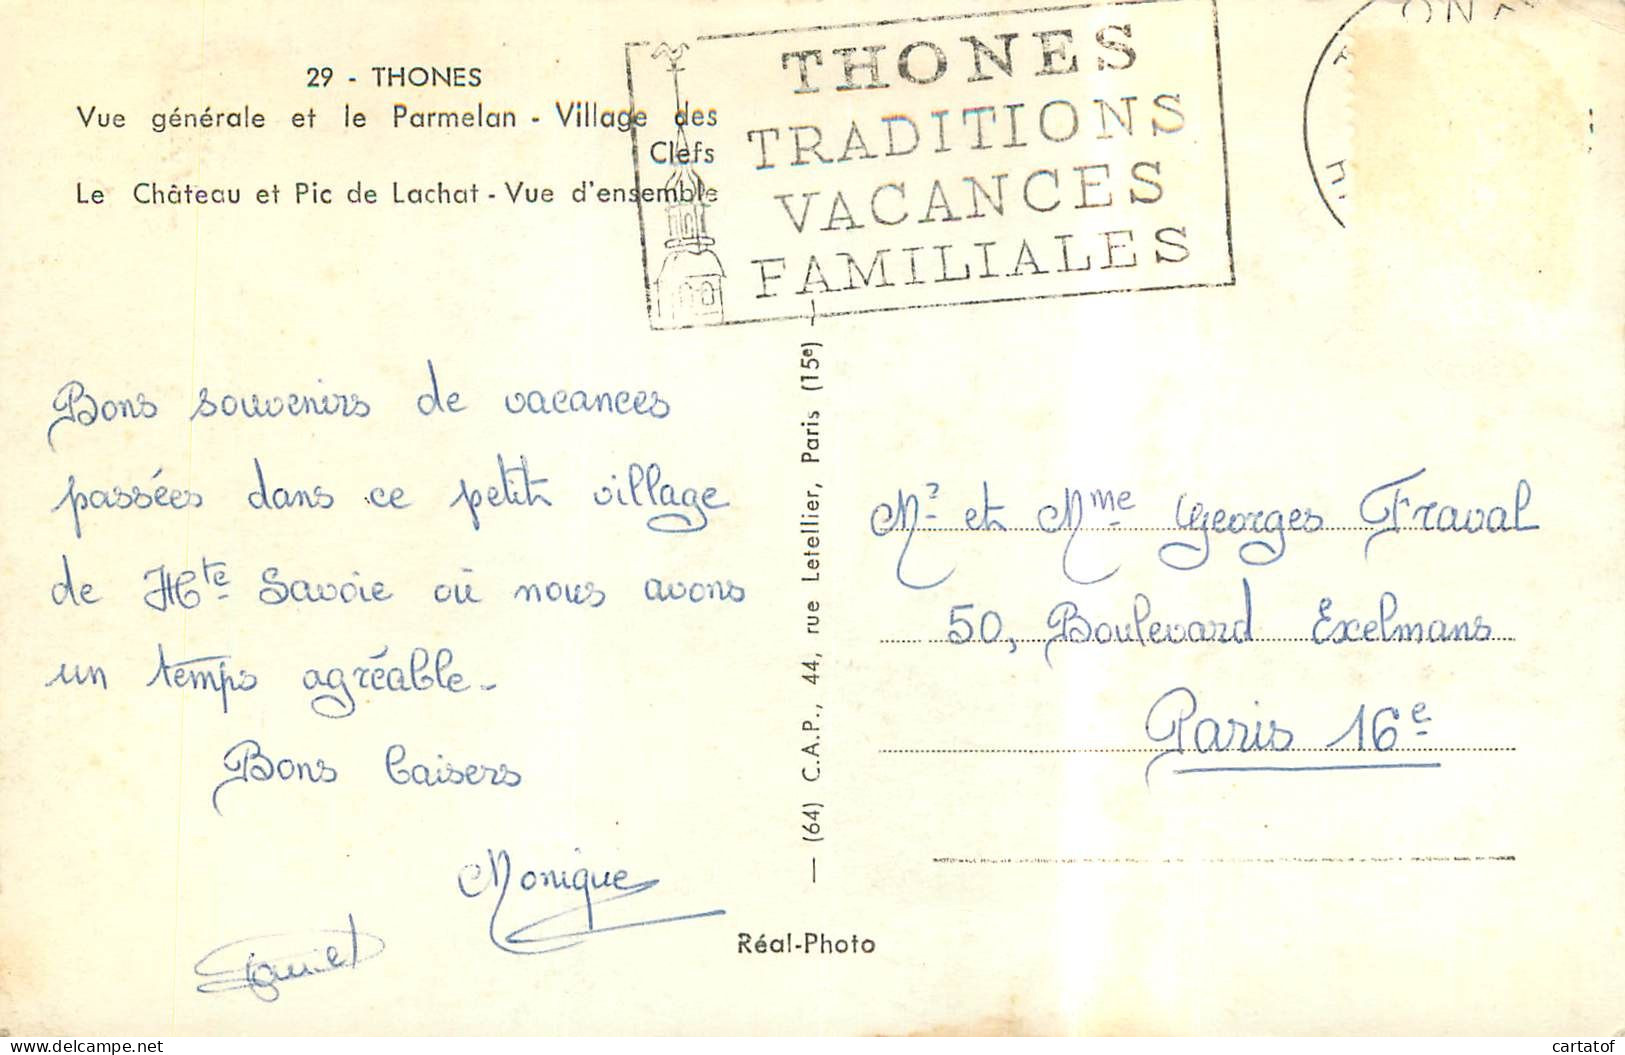 29 - THONES
Vue générale et le Parmelan - Village des
Clefs
Le Château et Pic de Lachat - Vue d'ensemble
THONES
TRADITIONS
VACANCES
FAMILIALES
Bons souvenirs de vacances
passées dans ce petit village
de Hte Savoie où nous avons
un temps agréable -
Bons baisers
Monique
Daniel
— (64) C.A.P., 44, rue Letellier, Paris (15e) —
Réal-Photo
Mr et Mme Georges Fraval
50, Boulevard Exelmans
Paris 16e
delcampe.net
cartatof